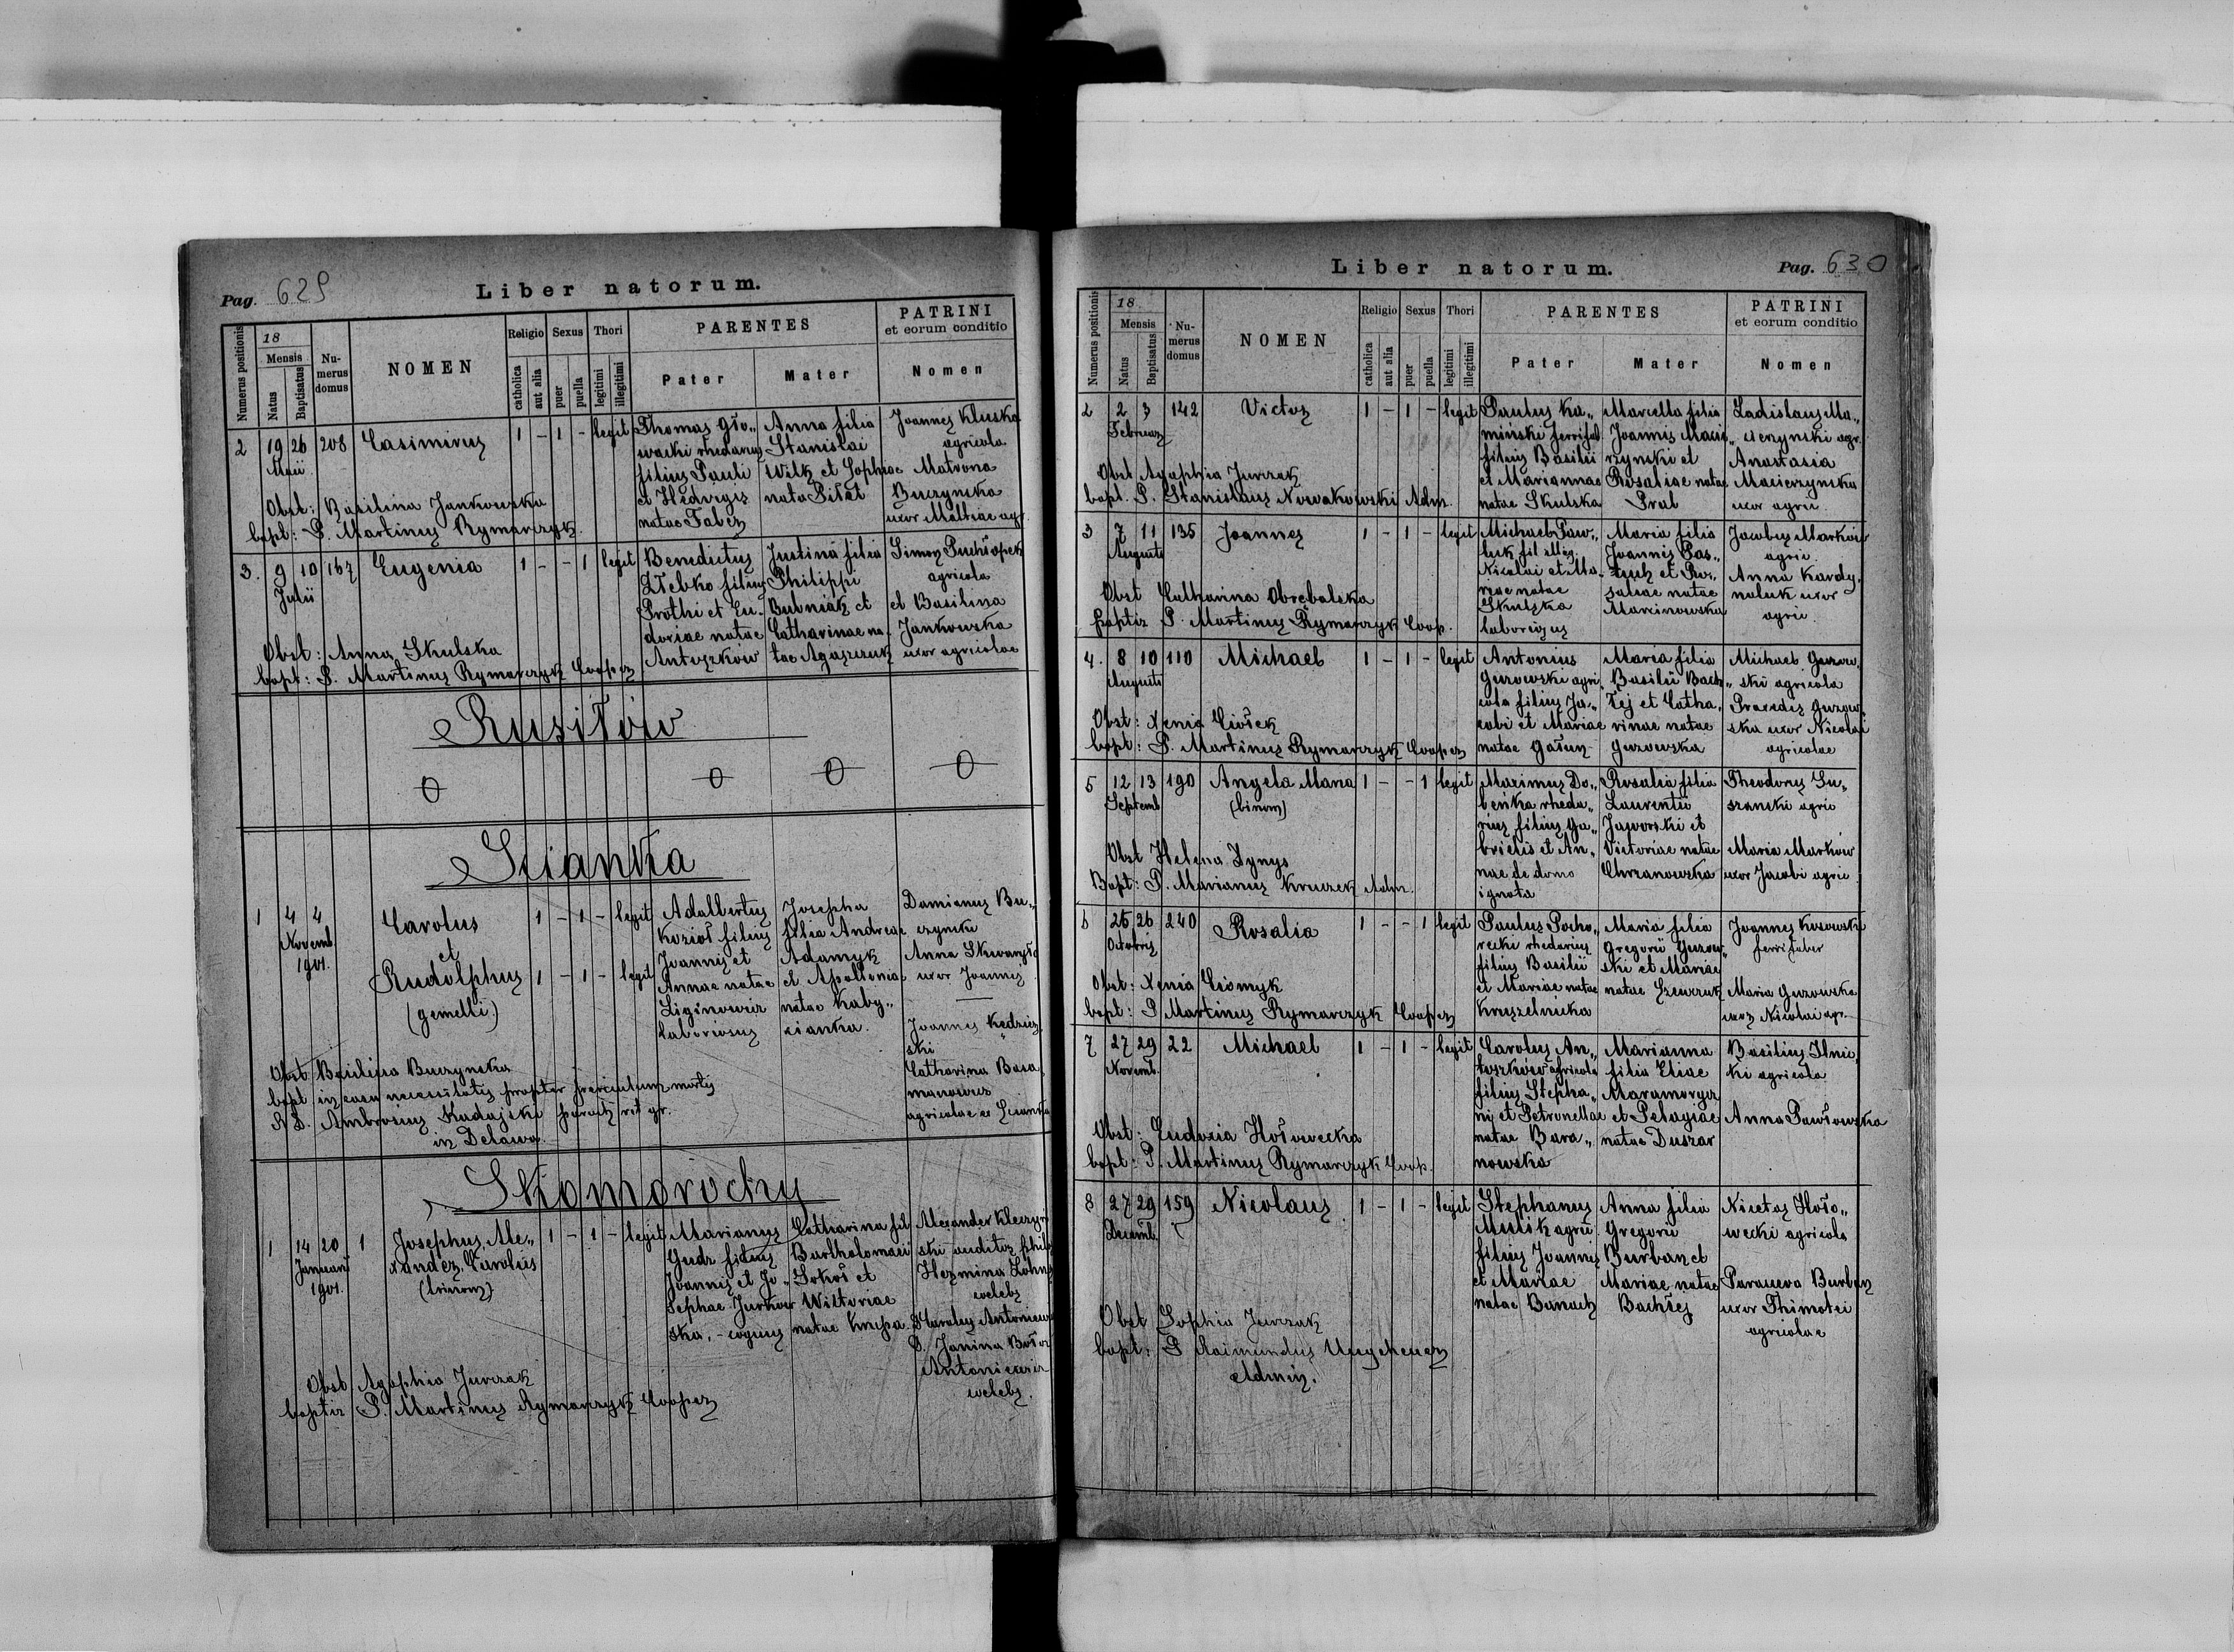 Pag. 629
Liber natorum.
Numerus positionis
18
Mensis
Natus
Baptisatus
Nu-
merus
domus
NOMEN
Religio
catholica
aut alia
Sexus
puer
puella
Thori
legitimi
illegitimi
PARENTES
Pater
Mater
PATRINI
et eorum conditio
Nomen
2 19 26 208 Casimirus 1 - 1 - legit
Maii
Thomas Gło„
wacki rhedarius
filius Pauli
et Hedvigis
natae
Anna filia
Stanislai
Wilk et Sophiae
nata Piłat
Joannes Kluska
agricola
Matrona
Buczynska
uxor Mathiae agr.
Obst: Basilina Jankowska
bapt: P. Martinus Rymarczyk
3. 9 10 167 Eugenia 1 - - 1 legit
Julii
Benedictus
Żłebko filius
Prothi et Eu-
doxiae natae
Antoszków
Justina filia
Philippi
Bubniak et
Catharinae na-
tae
Simon
agricola
et Basilina
Jankowska
uxor agricolae
Obst: Anna Skulska
bapt: P. Martinus Rymarczyk Cooper
Rusiłów
0 0 0 0
Scianka
1 4 4 Carolus 1 - 1 - legit
Novemb.
1901.
et
Rudolphus 1 - 1 - legit
(gemelli)
Adalbertus
Kozioł filius
Joannis et
Annae natae
laboriosus
Josepha
filia Andreae
Adamyk
et Apollonia
natae Kaby„
cianka.
Damianus Bu„
czynski
Anna
uxor Joannis
Joannes
ski
Catharina Bara
manowicz
agricolae ex Scianka
Obst Basilina Buczynska
bapt in casu necessitatis propter periculum mortis
R. D. Ambrosius paroch rit gr.
in Delawa.
Skomorochy
1 14 20 1 Josephus, Ale„ 1 - 1 - legit
Januarii
1901.
xander, Carolus
(trinom)
Marianus
filius
Joannis et Jo„
sephae Jurkow
ska, - coquus
Catharina fil
Bartholomaei
Sokół et
Wiktoriae
natae Krupa.
Alexander
ski auditor phil
Hermina
coelebs
Carolus Antoniewicz
P. Janina
Antoniewicz
coelebs.
Obst Agaphia Jurczak
baptiz P. Martinus Rymarczyk Cooper
Liber natorum.
Pag. 630
Numerus positionis
18
Mensis
Natus
Baptisatus
Nu-
merus
domus
NOMEN
Religio
catholica
aut alia
Sexus
puer
puella
Thori
legitimi
illegitimi
PARENTES
Pater
Mater
PATRINI
et eorum conditio
Nomen
2 2 3 142 Victor 1 - 1 - legit
Februar
Paulus Ka„
miński ferrifab.
filius Basilii
et Mariannae
natae Skulska
Marcella filia
Joannis Macie„
rzynski et
Rosaliae natae
Pral
Ladislaus Ma„
cierzynski agr.
Anastasia
Macierzynska
uxor agric
Obst Agaphia Jurczak
bapt. P. Stanislaus Nowakowski Adm.
3 7 11 135 Joannes 1 - 1 - legit
Augusti
Michael Paw„
luk fil illeg.
Nicolai et Ma„
riae natae
Skulska
laboriosus
Maria filia
Joannis Pas„
et Ro„
saliae natae
Marcinowska
Jacobus Markow
agric.
Anna Kardy„
naluk uxor
agric.
Obst Catharina Obrębalska
baptiz P. Martinus Rymarczyk Coop.
4. 8 10 110 Michael 1 - 1 - legit
Augusti
Antonius
Guzowski agri„
cola filius Ja„
cobi et Mariae
natae Gałun
Maria filia
Basilii Bach„
łej et Catha„
rinae natae
Guzowska
Michael Guzow„
ski agricola
Praxedis Guzow„
ska uxor Nicolai
agricolae
Obst: Xenia Ciołek
bapt: P. Martinus Rymarczyk Cooper
5 12 13 190 Angela Maria 1 - - 1 legit
Septemb.
(binom)
Maximus Do„
beńka rheda„
rius filius Ga„
brielis et An„
nae de domo
ignota
Rosalia filia
Laurentii
Jaworski et
Victoriae natae
Chrzanowska
Theodorus Su„
szanski agric
Maria Markow
uxor Jacobi agric
Obst Helena Zynys
Bapt: P. Marianus Kruczek Adm.
6 25 26 240 Rosalia 1 - - 1 legit
Octobris
Paulus Pocho„
recki rhedarius
filius Basilii
et Mariae natae
Kruszelnicka
Maria filia
Gregorii Guzow„
ski et Mariae
natae Szewczuk
Joannes Kosowski
ferrifaber
Maria Guzowska
uxor Nicolai agr.
Obst: Xenia Ciomyk
bapt: P Martinus Rymarczyk Cooper
7 27 29 22 Michael 1 - 1 - legit
Novemb.
Carolus An„
toszków agricola
filius Stepha„
ni et Petronellae
natae Bara„
nowska
Marianna
filia Eliae
Maramorga
et Pelagiae
natae Duszar
Basilius Ilnic„
ki agricola
Anna Pawłowska
Obst: Eudoxia Hołowecka
bapt: P. Martinus Rymarczyk Coop.
8 27 29 159 Nicolaus 1 - 1 - legit
Decemb.
Stephanus
Musik agric
filius Joannis
et Mariae
natae Banach
Anna filia
Gregorii
Burban et
Mariae natae
Bachłej
Nicetas Hoło„
wecki agricola
Parasceva Burban
uxor Thimotei
agricolae
Obst Sophia Jurczak
bapt: P Raimundus Ungeheuer
Admin.